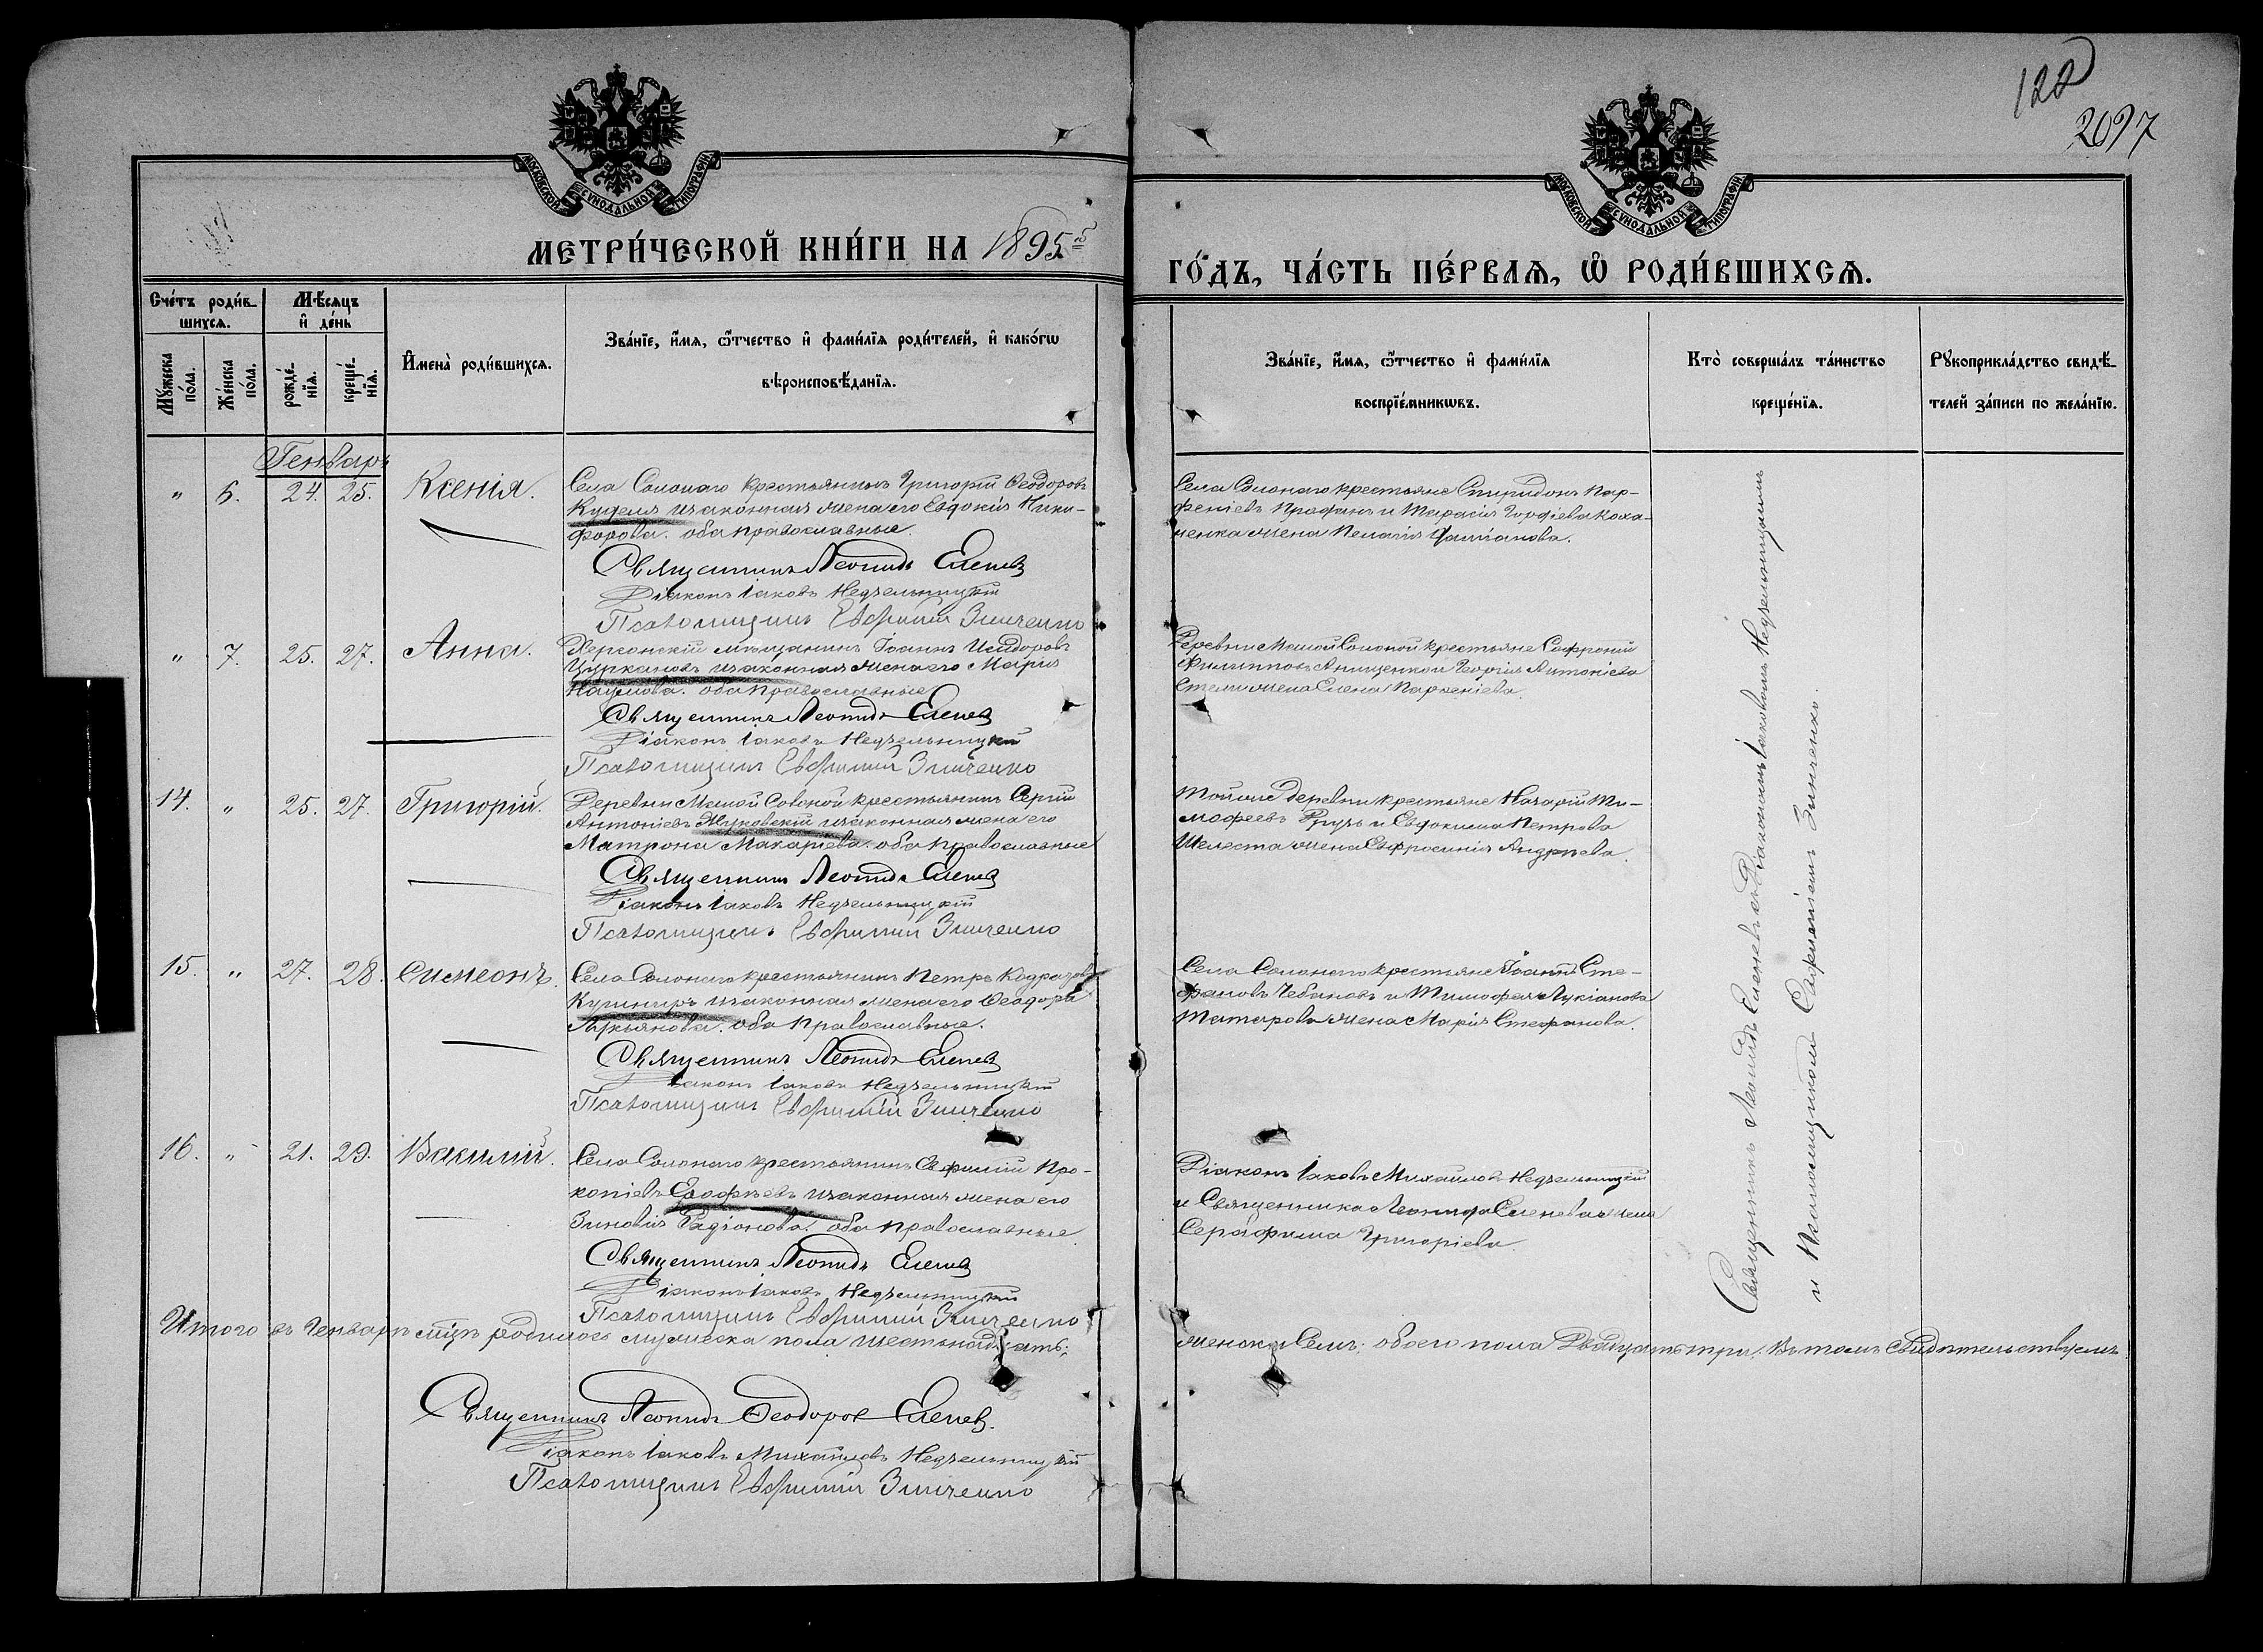 122
2097
МОСКОВСКОЙ СѴНОДАЛЬНОЙ ТИПОГРАФІИ
МОСКОВСКОЙ СѴНОДАЛЬНОЙ ТИПОГРАФІИ
МЕТРИ́ЧЕСКОЙ КНИ́ГИ НА 1895й
ГО́ДЪ, ЧА́СТЬ ПЕ́РВАЯ, Ѡ҆ РОДИ́ВШИХСЯ.
Сче́тъ роди́в-
шихсѧ.
Мѣ́сяцъ
и҆ де́нь
Мꙋ́жеска по́ла.
Же́нска по́ла.
рожде́-
нїѧ.
креще́-
нїѧ.
И҆мена̀ роди́вшихсѧ.
Зва́нїе, и҆́мѧ, ѻ҆́тчество и҆ фами́лїѧ роди́телей, и҆ како́гѡ
вѣроисповѣ́данїѧ.
Зва́нїе, и҆́мѧ, ѻ҆́тчество и҆ фами́лїѧ
воспрїе́мникѡвъ.
Кто̀ соверша́лъ та́инство
креще́нїѧ.
Рꙋкоприкла́дство свидѣ́-
телей за́писи по жела́нїю.
Генварь
" 6. 24. 25. Ксенія.
Села Солонаго крестьянинъ Григорій Ѳеодоровъ
Куделя и законная жена его Евдокія Ники-
форова. оба православные.
Священникъ Леонидъ Еленев
Діаконъ Іаковъ Недзельницкій
Псаломщикъ Евфимій Зинченко
Села Солонаго крестьяне Спиридонъ Пар-
феніевъ и Тарасія
жена Пелагія
" 7. 25. 27. Анна.
Херсонскій мѣщанинъ Іоаннъ Исидоровъ
Цуркановъ и законная жена его Марія
Наумова. оба православные
Священникъ Леонидъ Еленев
Діаконъ Іаковъ Недзельницкій
Псаломщикъ Евфимій Зинченко
Деревни Малой Солоной крестьяне Софроній
Филипповъ Анищенко и Георгія Антоніева
жена Елена Парѳеніева.
14. " 25. 27. Григорій.
Деревни Малой Солоной крестьянинъ Сергій
Антоніевъ Жуковскій и законная жена его
Матрона Макаріева. оба православные
Священникъ Леонидъ Еленев
Діаконъ Іаковъ Недзельницкій
Псаломщикъ Евфимій Зинченко
Той же деревни крестьяне Назарій Ти-
мофеевъ и Евдокима Петрова
Шелеста жена Евфросинія Андреева.
15. " 27. 28. Симеонъ.
Села Солонаго крестьянинъ Петръ Кодратовъ
Кушниръ и законная жена его Ѳеодора
Лукьянова. оба православные.
Священникъ Леонидъ Еленев
Діаконъ Іаковъ Недзельницкій
Псаломщикъ Евфимій Зинченко
Села Солонаго крестьяне Іоаннъ Сте-
фановъ Чебановъ и Тимофея Лукіанова
Татарова жена Марія Стефанова.
16. " 21. 29. Василій.
Села Солонаго крестьянинъ Евфимій Про-
копіевъ и законная жена его
Зиновія Радіонова. оба православные.
Священникъ Леонидъ Еленев
Діаконъ Іаковъ Недзельницкій
Псаломщикъ Евфимій Зинченко
Діаконъ Іаковъ Михаиловъ Недзельницкій
и Священника Леонида Еленева жена
Серафима Григоріева.
Священникъ Леонидъ Еленевъ съ Діакономъ Іаковомъ Недзельницкимъ
и Псаломщикомъ Евфиміемъ Зинченко.
Итого въ Генварѣ мцѣ родилось мужеска пола шестьнадцать; женска Семь; обоего пола Двадцать три. Въ томъ свидѣтельствуемъ
Священникъ Леонидъ Ѳеодоров Еленев.
Діаконъ Іаковъ Михаиловъ Недзельницкій
Псаломщикъ Евфимій Зинченко